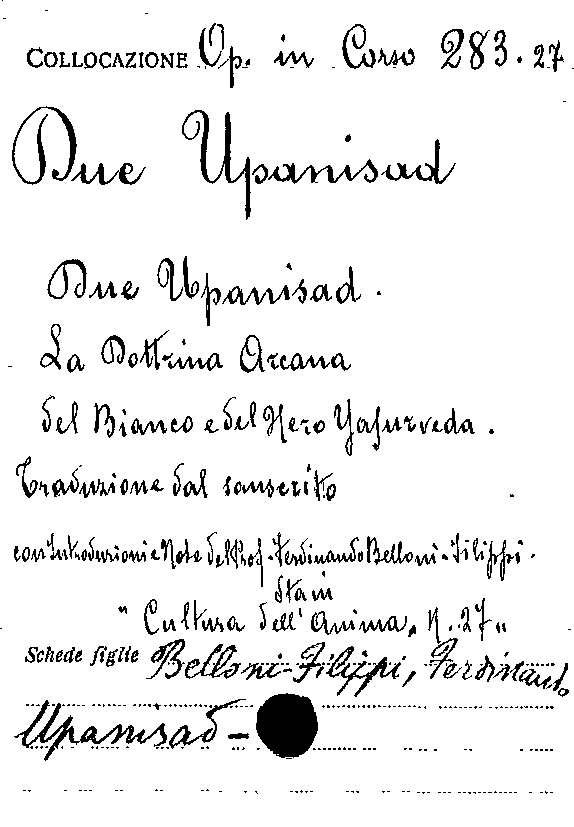 COLLOCAZIONE Op. in Corso 283.27
Due Upanisad
Due Upanisad.
La Dottrina Arcana
del Bianco e del Nero Yajurveda.
Traduzione dal sanscrito
con Introduzioni e Note del Prof. Ferdinando Belloni-Filippi.
Sta in
"Cultura dell'Anima, N. 27"
Schede figlie a Belloni-Filippi, Ferdinando
Upanisad -